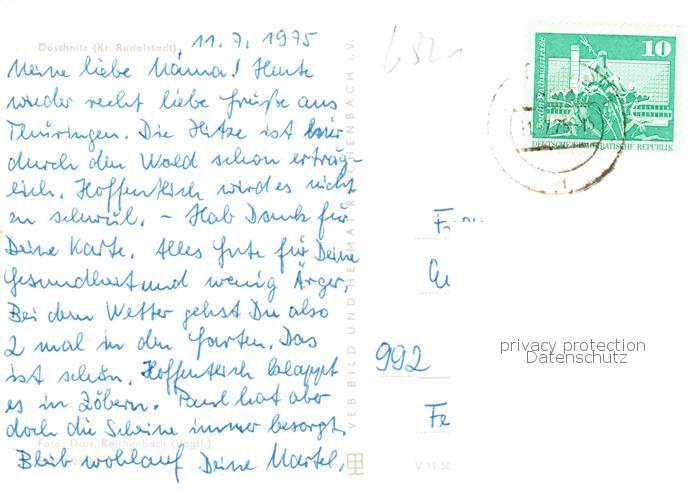 Döschnitz (Kr. Rudolstadt)
11.7.1975
Meine liebe Mama! Heute
wieder recht liebe Grüße aus
Thüringen. Die Hitze ist hier
durch den Wald schon erträg-
lich. Hoffentlich wird es nicht
zu schwül. – Hab Dank für
Deine Karte. Alles Gute für Deine
Gesundheit und wenig Ärger.
Bei dem Wetter gehst Du also
2 mal in den Garten. Das
ist schön. Hoffentlich klappt
es in Zöbern. Paul hat aber
doch die Scheine immer besorgt.
Foto: Darr, Reichenbach (Vogtl.)
Bleib wohlauf Deine
VEB BILD UND HEIMAT REICHENBACH I.V.
V 11 50
10
Berlin, Rathausstraße
DEUTSCHE DEMOKRATISCHE REPUBLIK
992
Fe
privacy protection
Datenschutz